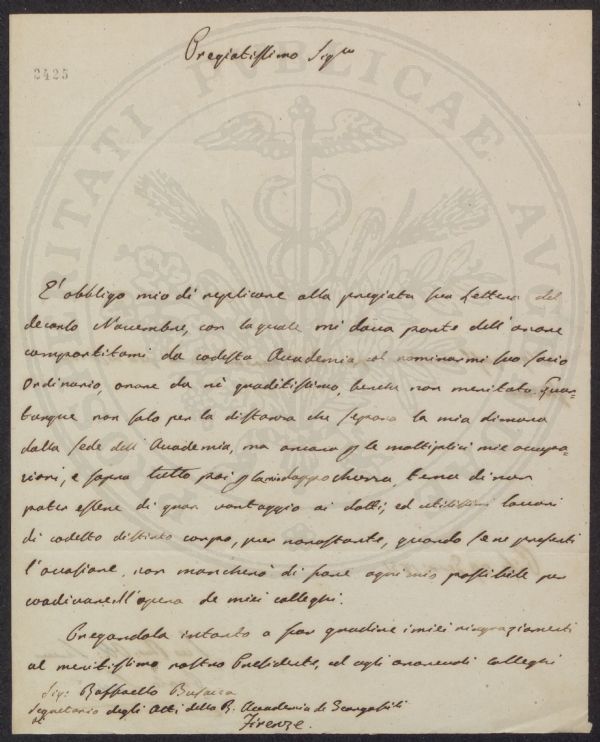 Pregiatissimo Sig.re
2425
PROSPERITATI PUBLICAE AUG
E' obbligo mio di replicare alla pregiata sua Lettera del
decorso Novembre, con la quale mi dava parte dell'onore
compartitomi da codesta Accademia col nominarmi suo socio
Ordinario, onore da me graditissimo, benché non meritato. Quan-
tunque non solo per la distanza che separa la mia dimora
dalla sede dell'Accademia, ma ancora p le moltiplici mie occupa-
zioni, e sopra tutto poi p la mia dappochezza, tema di non
poter essere di gran vantaggio ai dotti, ed utilissimi lavori
di codesto distinto corpo, pur nonostante, quando se ne presenti
l'occasione, non mancherò di fare ogni mio possibile per
coadiuvare all'opera de miei colleghi.
Pregandola intanto a far gradire i miei ringraziamenti
al meritissimo nostro Presidente, ed agli onorevoli colleghi
Sig: Raffaello Busacca
Segretario degli Atti della R. Accademia de Georgofili
Firenze.